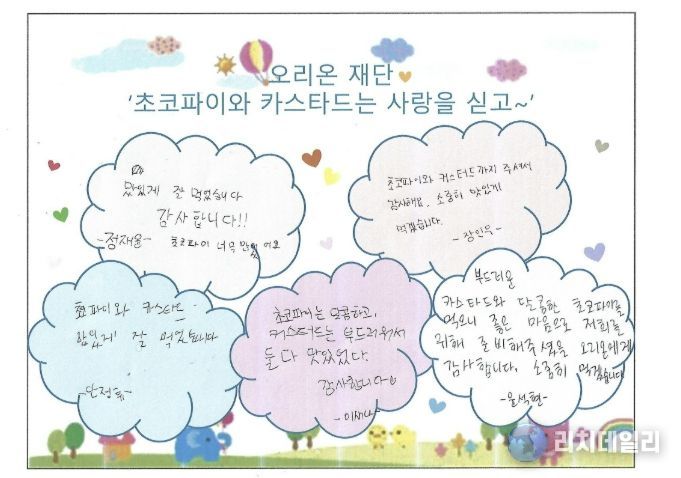 오리온 재단
‘초코파이와 카스타드는 사랑을 싣고~’
맛있게 잘 먹었습니다
감사합니다!!
-정재울- 초코파이 너무 맛있어요
초코파이와 커스터드까지 주셔서
감사해요. 소중히 맛있게
먹겠습니다.
- 장인우 -
초코파이와 카스타드
맛있게 잘 먹었습니다
초코파이는 달콤하고,
커스터드는 부드러워서
둘 다 맛있었다.
감사합니다
부드러운
카스타드와 달콤한 초코파이를
먹으니 좋은 마음으로 저희를
위해 준비해주셨을 오리온에게
감사합니다. 소중히 먹겠습니다
-윤석현-
리치데일리